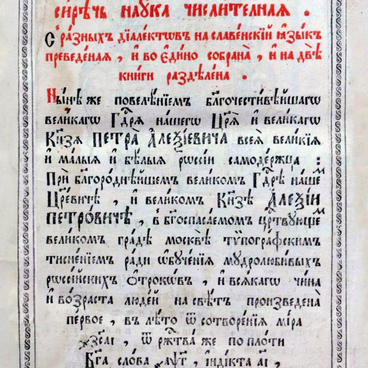 сирѣчь наука числителная .
С разныхъ дїалектѡвъ на славенскїй ꙗзыкъ
преведеная , и во єдино собрана , и на двѣ
книги раздѣлена .
Нынѣ же повелѣнїемъ благочестивѣйшагѡ
великагѡ гдⷭ҇рѧ нашегѡ Цр҃ѧ и великагѡ
Кн҃зѧ ПЕТРА АЛЕѮІЕВИЧА всеѧ великїѧ
и малыѧ и бѣлыѧ рѡссїи самодержца :
При бл҃городнѣйшемъ великомъ Гдⷭ҇рѣ наше
Цр҃евичѣ , и великомъ Кн҃зѣ АЛЕѮІИ
ПЕТРОВИЧѢ , в бг҃оспасаемом црⷭ҇твующе
великом градѣ москвѣ тѷпографским
тисненїем ради ѡбученїѧ мудролюбивых
рѡссїйских ѻтрокѡв , и всѧкагѡ чина
и возраста людей на свѣтъ произведена
первое , в лѣто ѿ сотворенїѧ мїра
҂зсаі , ѿ рж҃тва же по плоти
Бг҃а слова ҂аѱг , індїкта аі ,